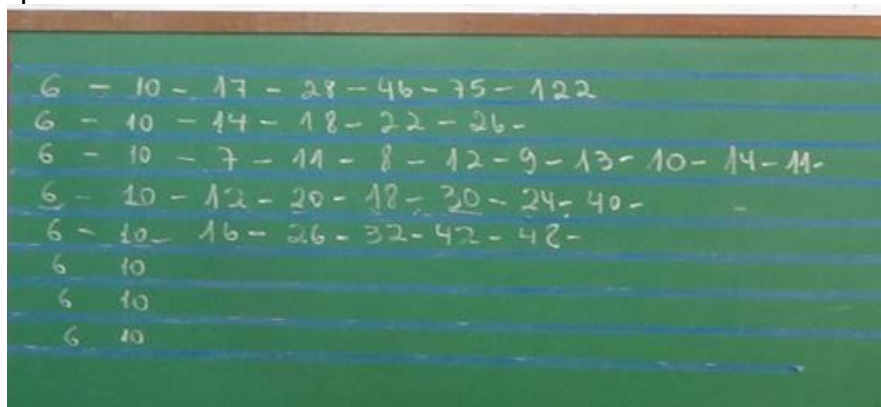 6 - 10 - 17 - 28 - 46 - 75 - 122
6 - 10 - 14 - 18 - 22 - 26 -
6 - 10 - 7 - 11 - 8 - 12 - 9 - 13 - 10 - 14 - 11 -
6 - 10 - 12 - 20 - 18 - 30 - 24 - 40 - -
6 - 10 - 16 - 26 - 32 - 42 - 48 -
6 10
6 10
6 10